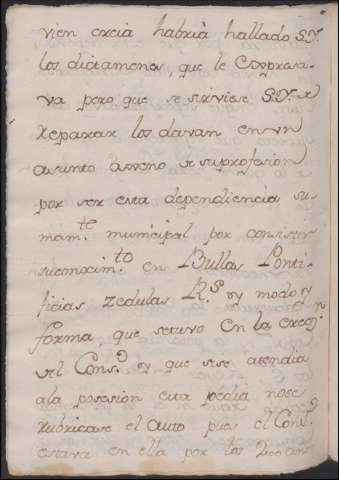 vien excia habria hallado S.Y.
los dictamenes, que le Expresa-
va pero que se sirviese S.Y. de
Reparar los davan en vn
asunto ageno de su profesion
por ser esta dependiencia su-
mam.te municipal por consistir
su conocim.to en Bullas Ponti-
ficias zedulas R.s y modo y
forma que se tuvo en la exec.n
del Cons.o y que si se atendia
a la posesion esta pedia no se
Rubricase el auto pues el Cons.o
estava en ella por los 200 años